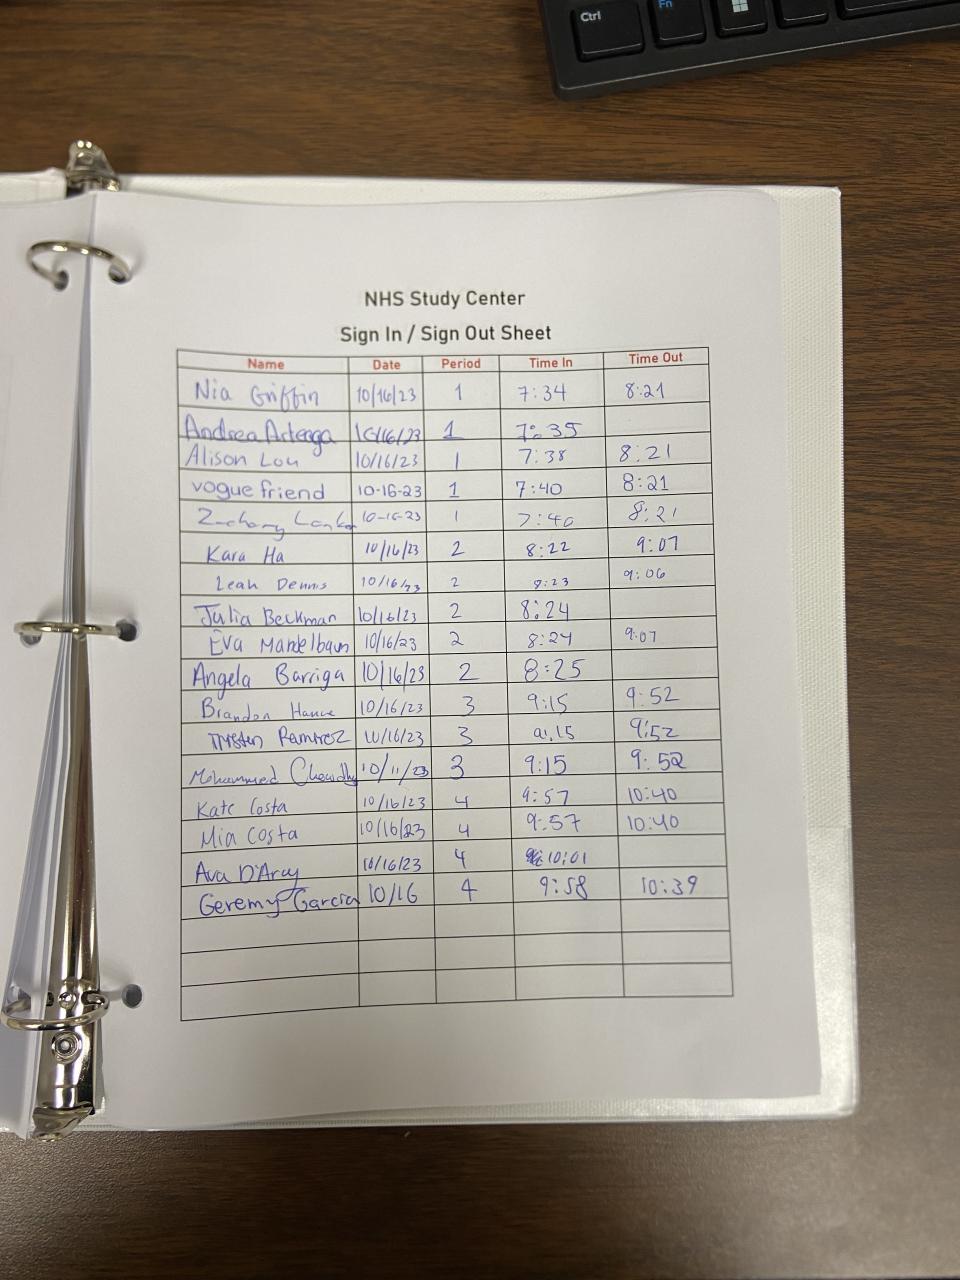 Ctrl
Fn
NHS Study Center
Sign In / Sign Out Sheet
Name Date Period Time In Time Out
Nia Griffin 10/16/23 1 7:34 8:21
Andrea Arteaga 10/16/23 1 7:35
Alison Lou 10/16/23 1 7:38 8:21
vogue friend 10-16-23 1 7:40 8:21
Zachary 10-16-23 1 7:40 8:21
Kara Ha 10/16/23 2 8:22 9:07
Leah Dennis 10/16/23 2 8:23 9:06
Julia Beckman 10/16/23 2 8:24
Eva Mandelbaum 10/16/23 2 8:24 9:07
Angela Barriga 10/16/23 2 8:25
Brandon 10/16/23 3 9:15 9:52
Ramirez 10/16/23 3 9:15 9:52
Mohammed 10/11/23 3 9:15 9:52
Kate Costa 10/16/23 4 9:57 10:40
Mia Costa 10/16/23 4 9:57 10:40
Ava D'Arcy 10/16/23 4 10:01
Geremy Garcia 10/16 4 9:58 10:39